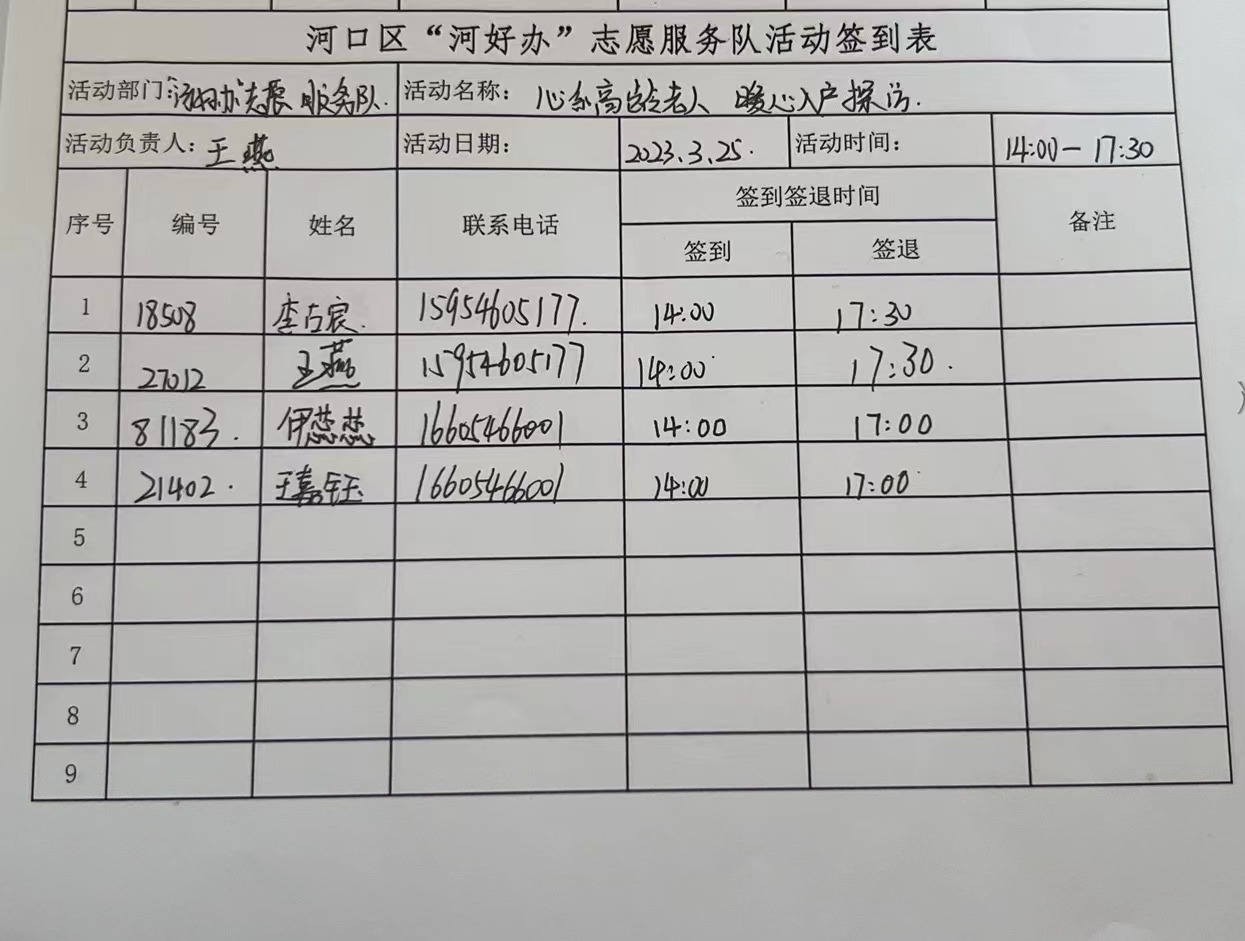 河口区“河好办”志愿服务队活动签到表
活动部门: 服务队. 活动名称: 心系高龄老人 暖心入户探访.
活动负责人: 王燕 活动日期: 2023.3.25. 活动时间: 14:00-17:30
序号 编号 姓名 联系电话 签到签退时间 备注
签到 签退
1 18508 李占宸. 15954605177. 14:00 17:30
2 27012 王燕 15954605177 14:00 17:30.
3 81183. 伊蕊蕊 16605466001 14:00 17:00
4 21402. 王嘉钰 16605466001 14:00 17:00
5
6
7
8
9